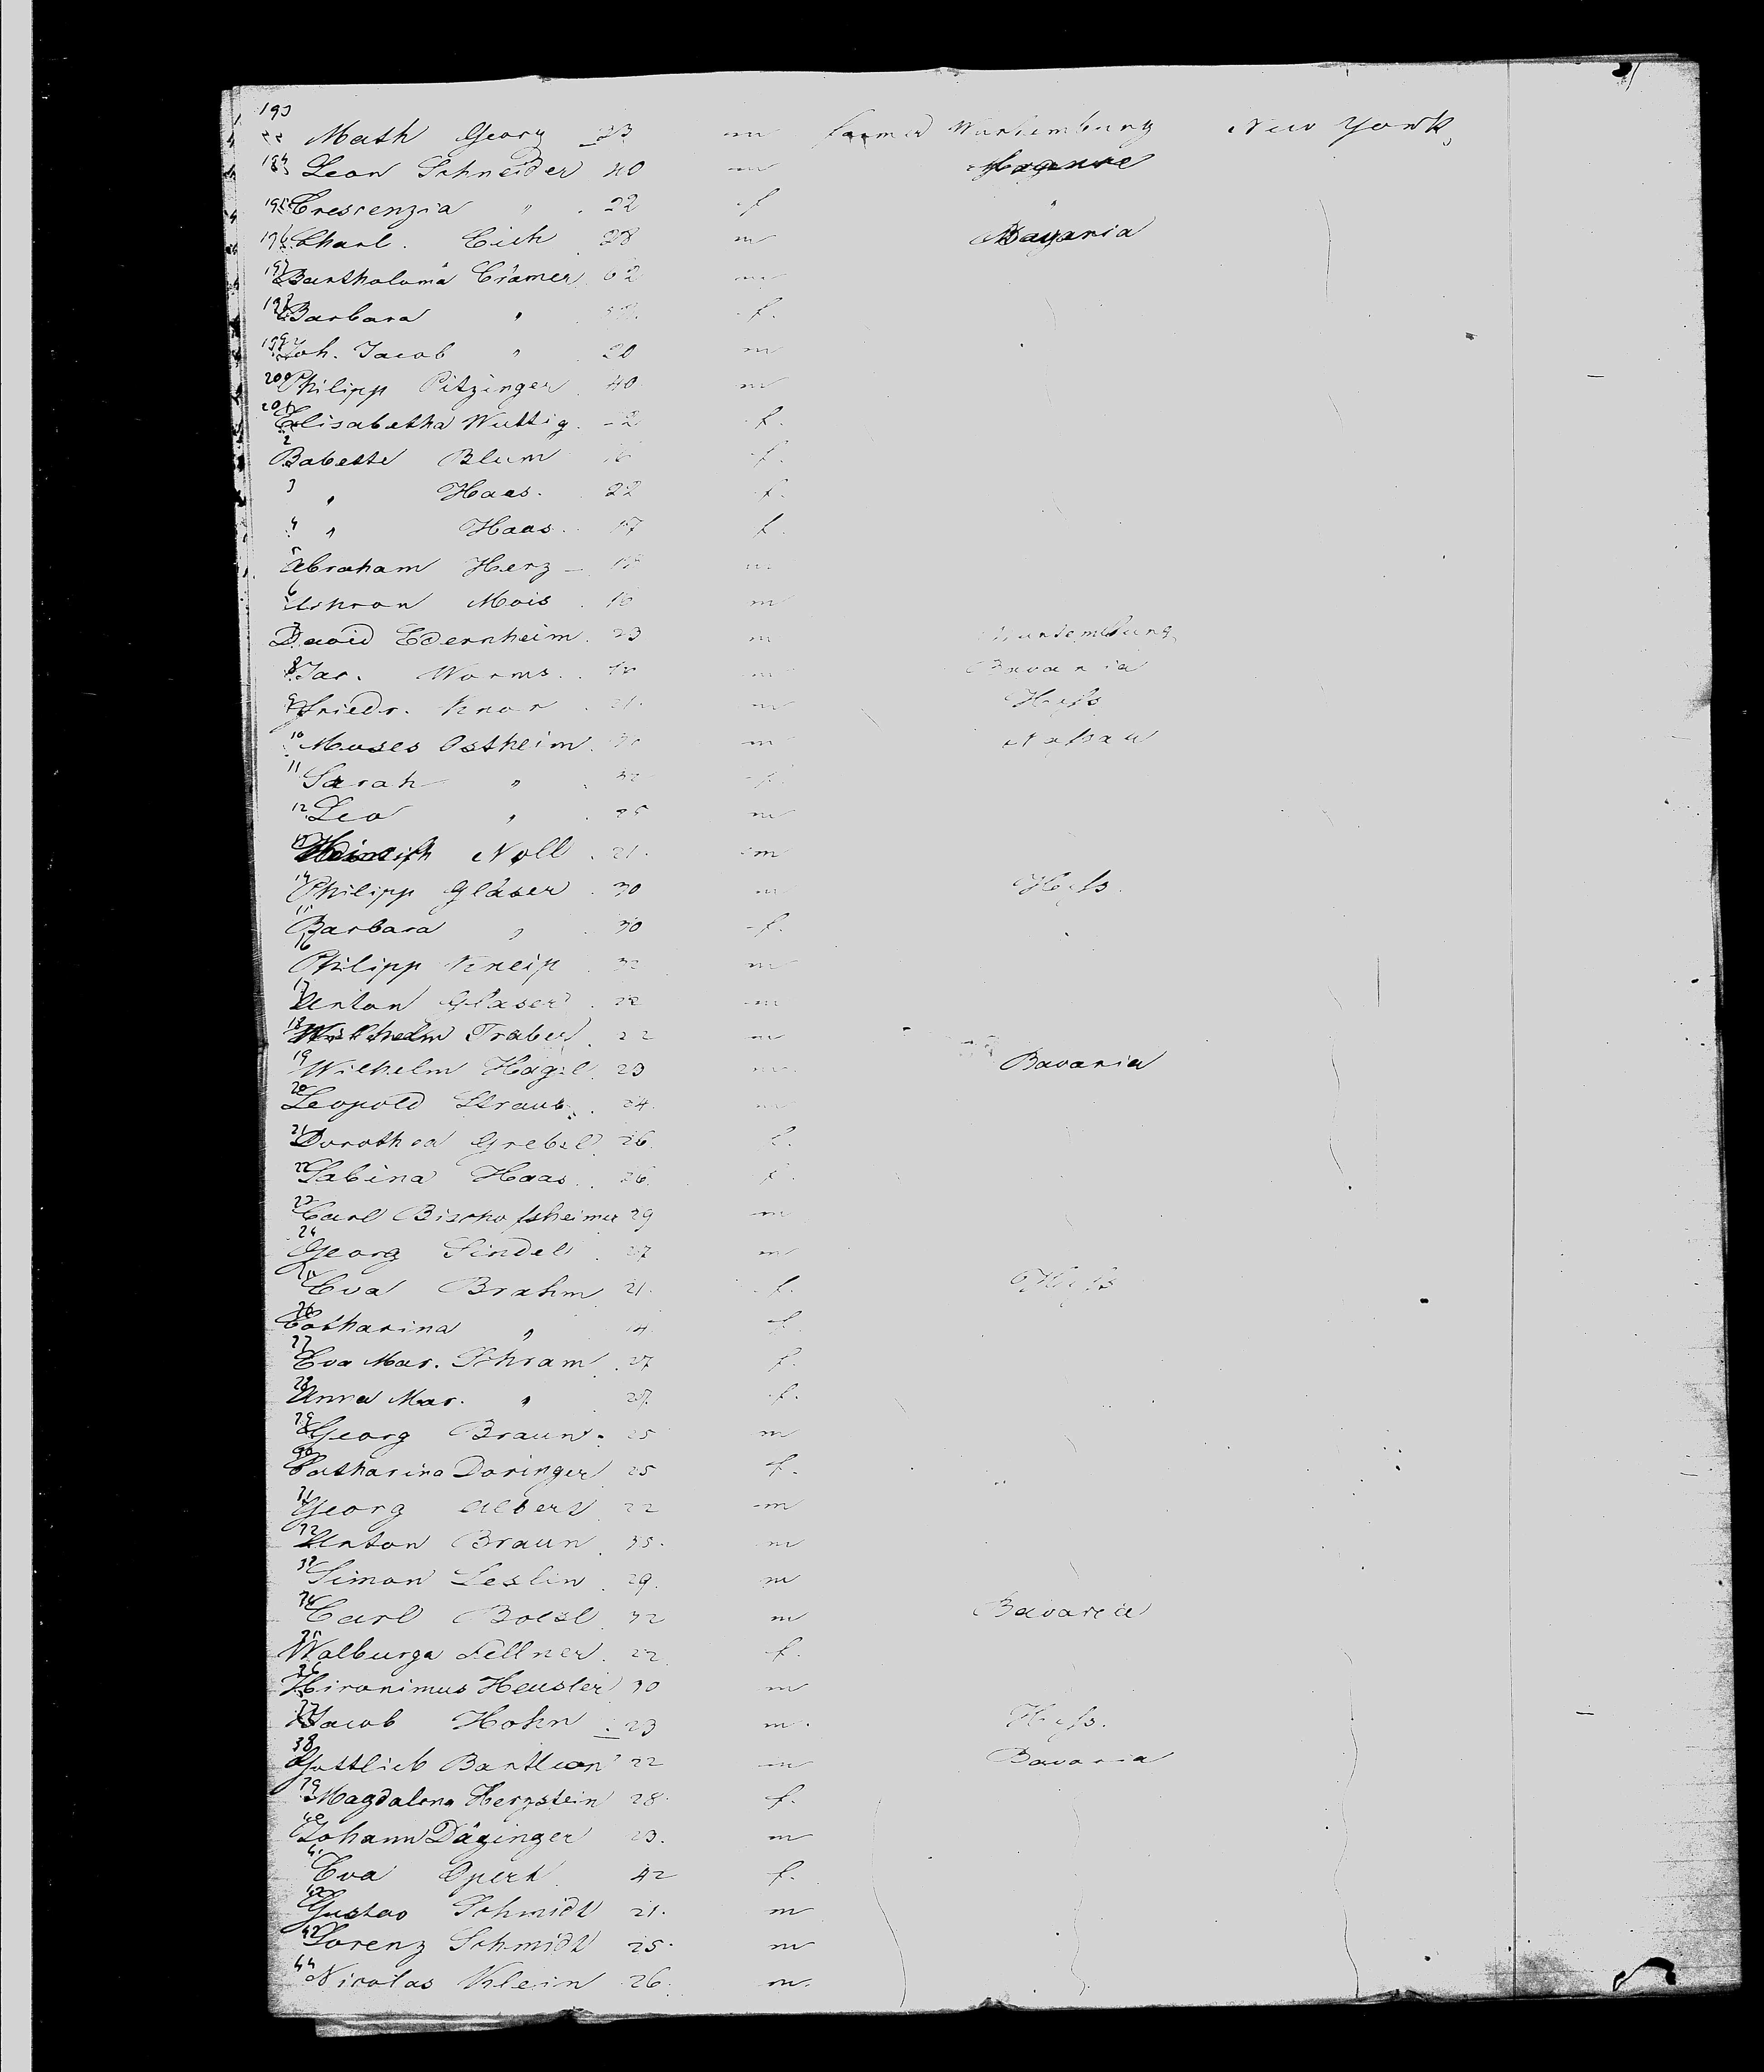 193 Math Georg 23 m farmer Wurtemburg New York
194 Leon Schneider 40 m
195 Crescenzia " 22 f "
196 Charl. Eich 28 m Bavaria
197 Bartholomä Crämer 62 m
198 Barbara " f.
199 Joh. Jacob " 20 m
200 Philipp Pitzinger 40 m
201 Elisabetha Wuttig f.
2 Babette Blum 16 f.
3 " Haas. 22 f.
4 " Haas. 17 f.
5 Abraham Herz m
6 Mois m
7 David Edernheim 23 m Wurtemburg
8 Jac. Worms m Bavaria
9 Friedr. Knor 21. m Hess
10 Moses Ostheim m Nassau
11 Sarah " f
12 Leo " m
13 Heinrich Noll 21. m
14 Philipp Gläser 30 m Hess.
15 Barbara " 30 f.
16 Philipp Kneip 32 m
17 Anton Glaser 22 m
18 Wilhelm Traber 22 m
19 Wilhelm Hagel 23 m Bavaria
20 Leopold Straub 24 m
21 Dorothea Grebel 26 f.
22 Sabina Haas 26 f.
23 Carl Bischofsheimer 29 m
24 Georg Sindel 27 m
25 Eva Brahm 21. f. Hess
26 Catharina " 14 f
27 Eva Mar. Schram 27 f.
28 Anna Mar. " 27. f.
29 Georg Braun 25 m
30 Catharina Doringer 25 f.
31 Georg Albert 22 m
32 Anton Braun 35. m
33 Simon Leslin 29. m
34 Carl Boesl 32 m Bavaria
35 Walburga Fellner 22 f.
36 Hironimus Heusler 30 m
37 Jacob Hohn 23 m. Hess.
38 Gottlieb Bantleon 22 m Bavaria
39 Magdalena Herzstein 28. f.
40 Johann Däginger 23. m
41 Eva Opert 42 f.
42 Gustav Schmidt 21. m
43 Lorenz Schmidt 25. m
44 Nicolas Klein 26. m.